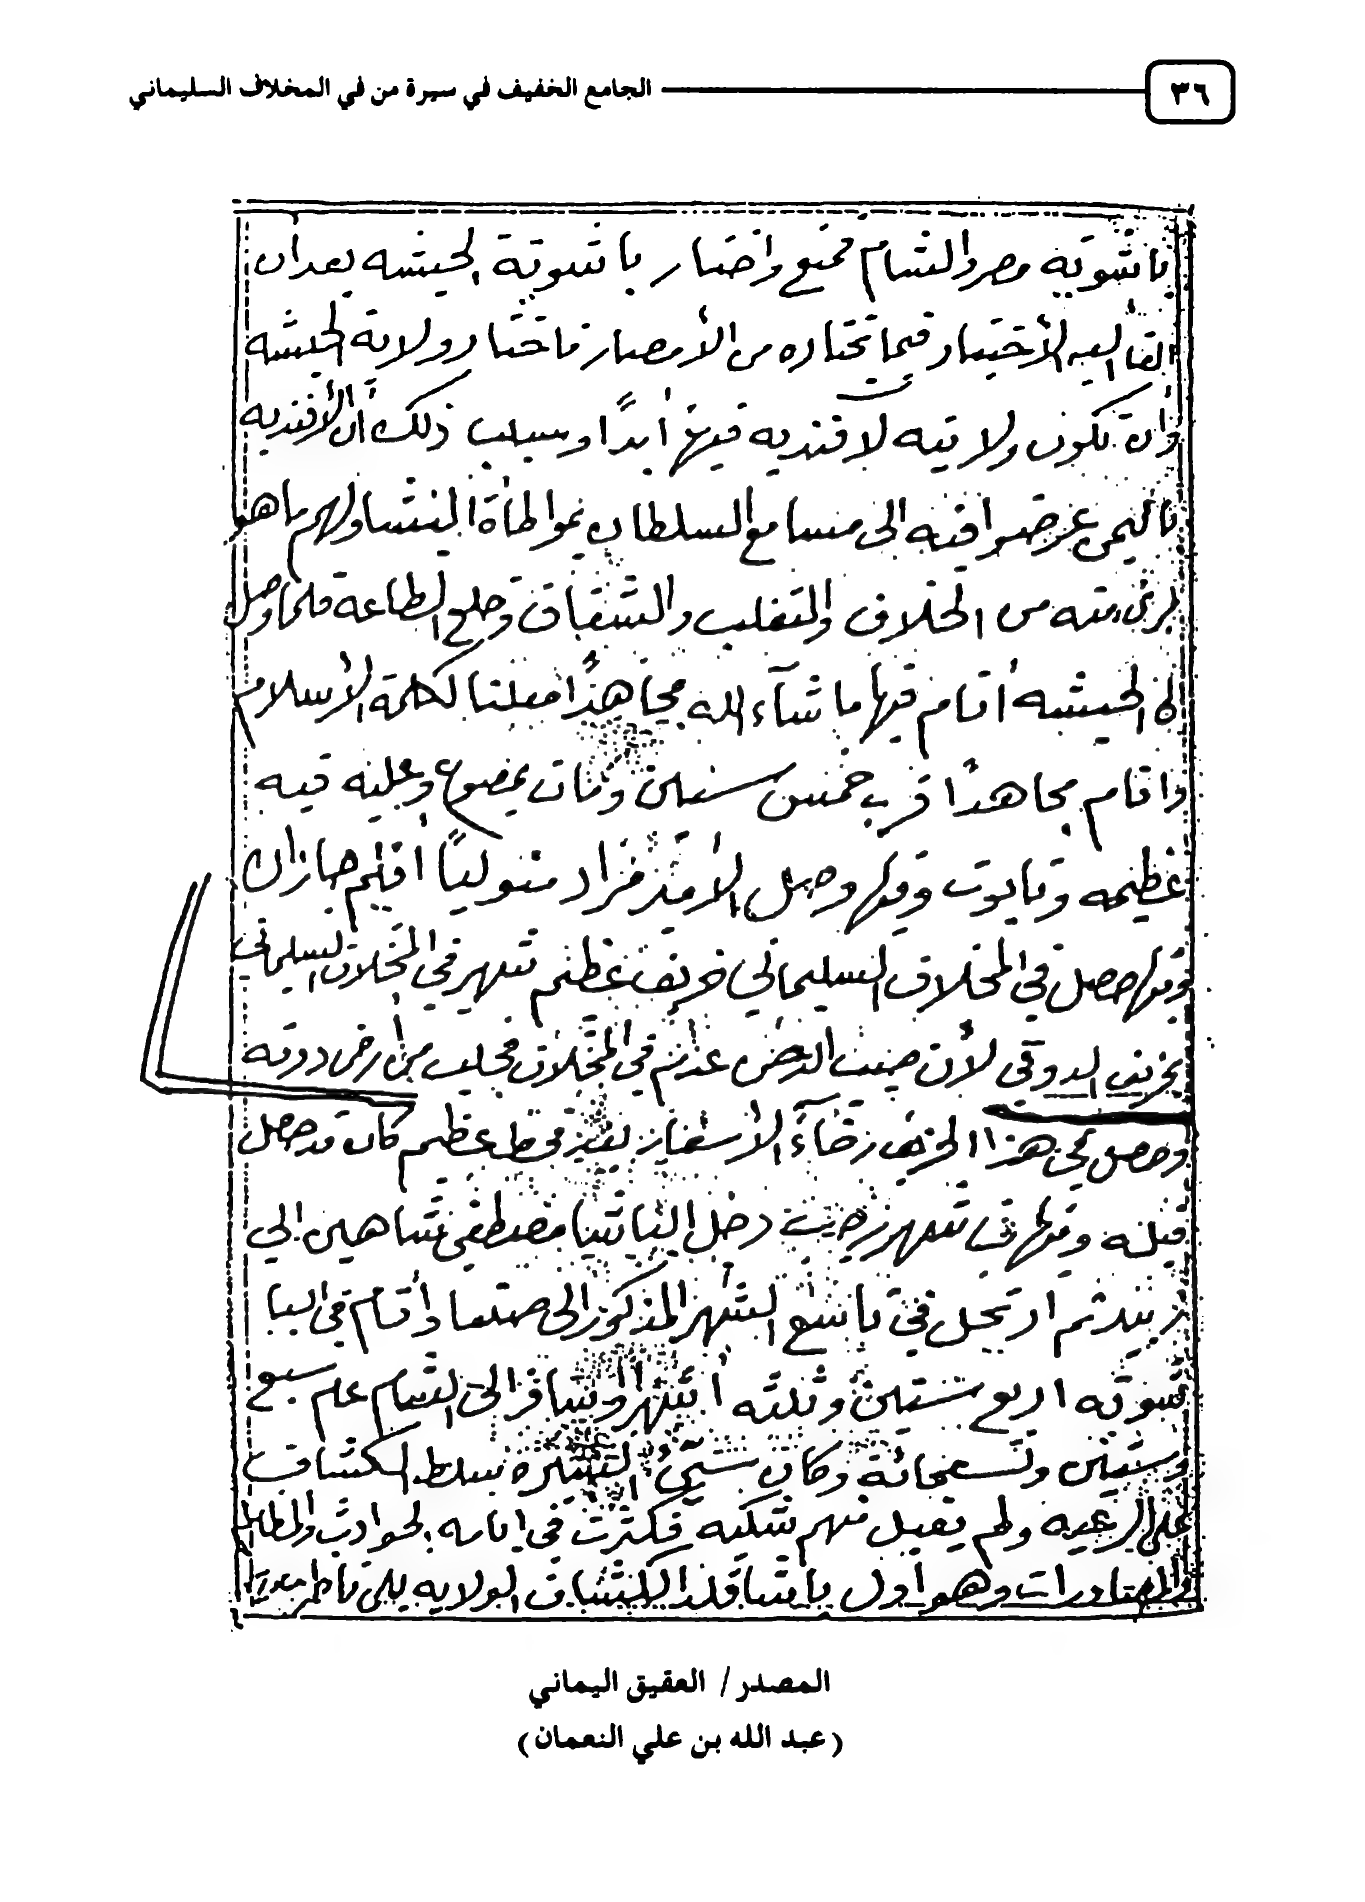 ٣٦
الجامع الخفيف في سيرة من في المخلاف السليماني
باشوية مصر والشام فمنع واختار باشوية الحبشه بعد ان
القا اليه الأختيار فيما يختاره من الأمصار فاختار ولاية الحبشه
وان تكون ولايته لافنديه فيها أبدًا وسبب ذلك أن الأفنديه
باليمن عرضوا فيه الى مسامع السلطان بمواطأة البشاولهم ما هو
برئ منه من الخلاف والتغلب والشقاق وخلع الطاعة فلما وصل
الحبشه أقام فيها ما شآء الله مجاهدًا معلنا لكلمة الأسلام
واقام مجاهدًا قرب خمس سنين ومات بمصوع وعليه قبه
عظيمه وتابوت وفيها وصل الأمير فراد متوليًا أقليم جازان
وفيها حصل في المخلاف السليماني خريف عظيم شهر في المخلاف السليماني
بخريف الدوقي لأن الدخن عدم في المخلاف فجلب من أرض دوقه
وحصل في هذا الخريف رخآء الأسعار بعد قحط عظيم كان قد حصل
قبله وفيها شهر رجب دخل الباشا مصطفى شاهين الى
زبيد ثم ارتحل في تاسع الشهر المذكور الى صنعا وأقام في البا
شويه اربع سنين وثلثه أشهر وسافر الى الشام عام سبع
وستين وتسعمائة وكان سيئ السيره سلط الكشاف
على الرعيه ولم يقبل فيهم شكيه فكثرت في ايامه الحوادث والمظالم
والمصادرات وهو أول باشا قلد الكشاف الولايه
المصدر / العقيق اليماني
(عبد الله بن علي النعمان)